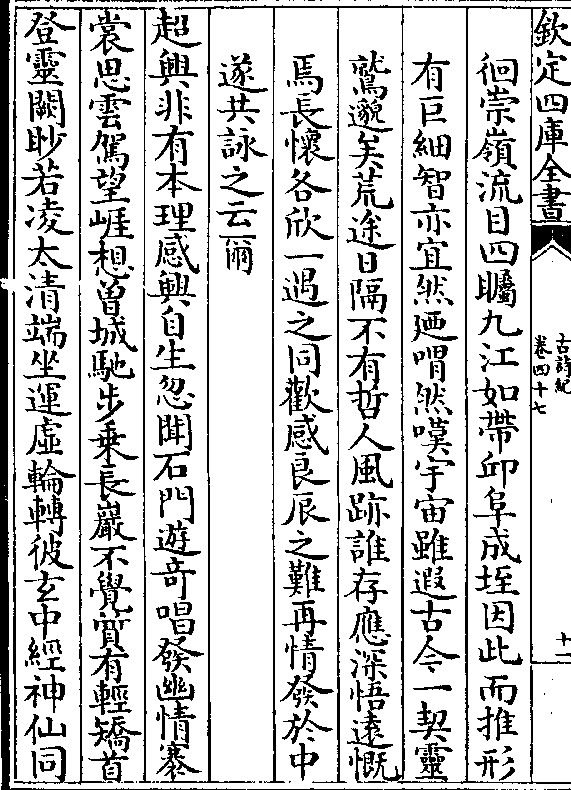 欽定四庫全書
古詩紀
卷四十七
十一
徊崇嶺流目四矚九江如帶邱阜成垤因此而推形
有巨細智亦宜然廼喟然嘆宇宙雖遐古今一契靈
鷲邈矣荒途日隔不有哲人風跡誰存應深悟遠慨
焉長懷各欣一遇之同歡感良辰之難再情發於中
遂共詠之云爾
超興非有本理感興自生忽聞石門遊奇唱發幽情褰
裳思雲駕望崖想曾城馳步乗長巖不覺質有輕矯首
登靈闕眇若凌太清端坐運虛輪轉彼玄中經神仙同